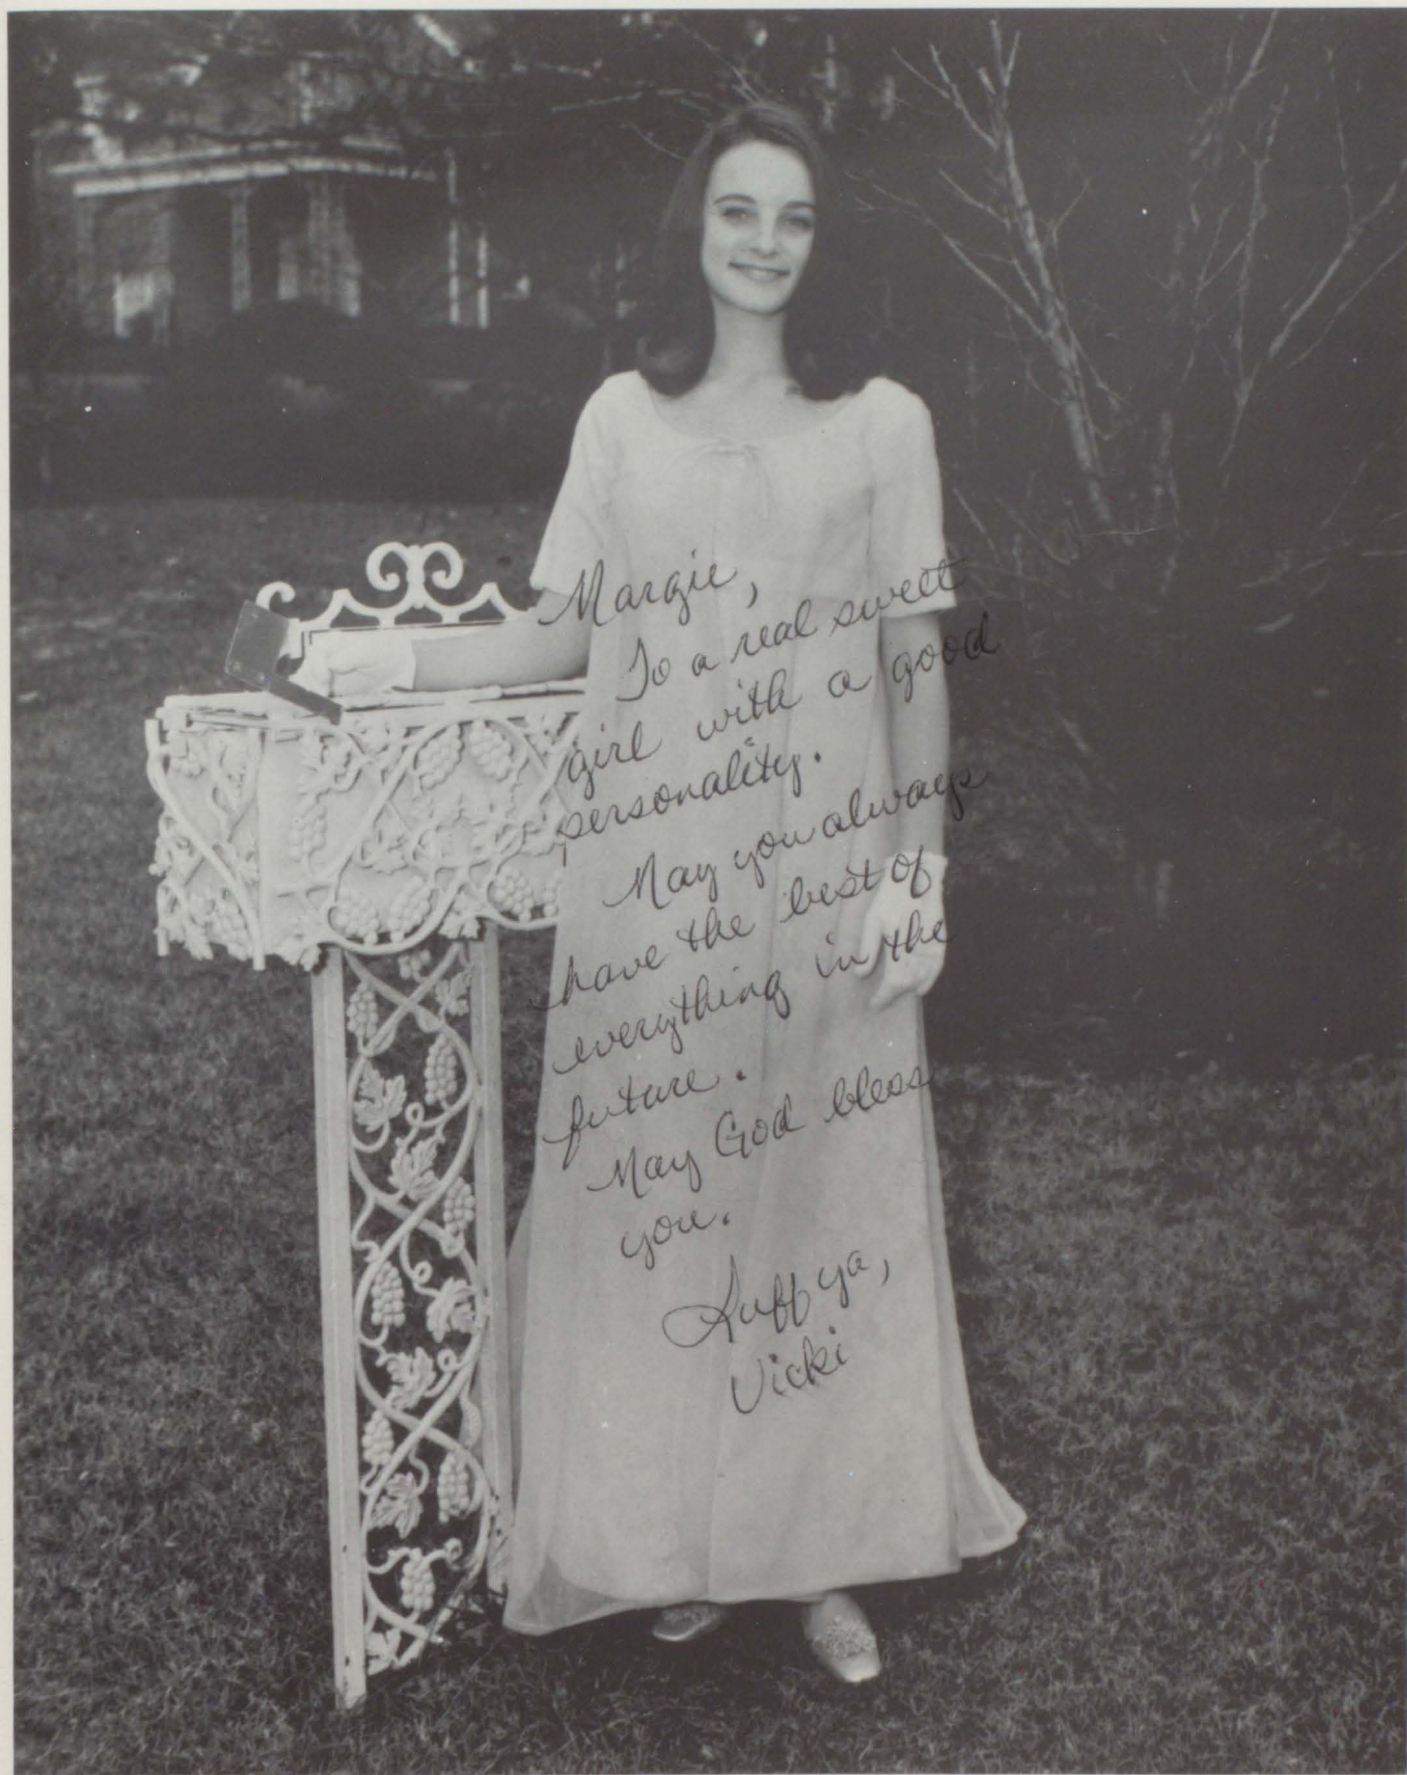 Margie,
To a real sweet
girl with a good
personality.
May you always
have the best of
everything in the
future.
May God bless
you.
Luff ya,
Vicki